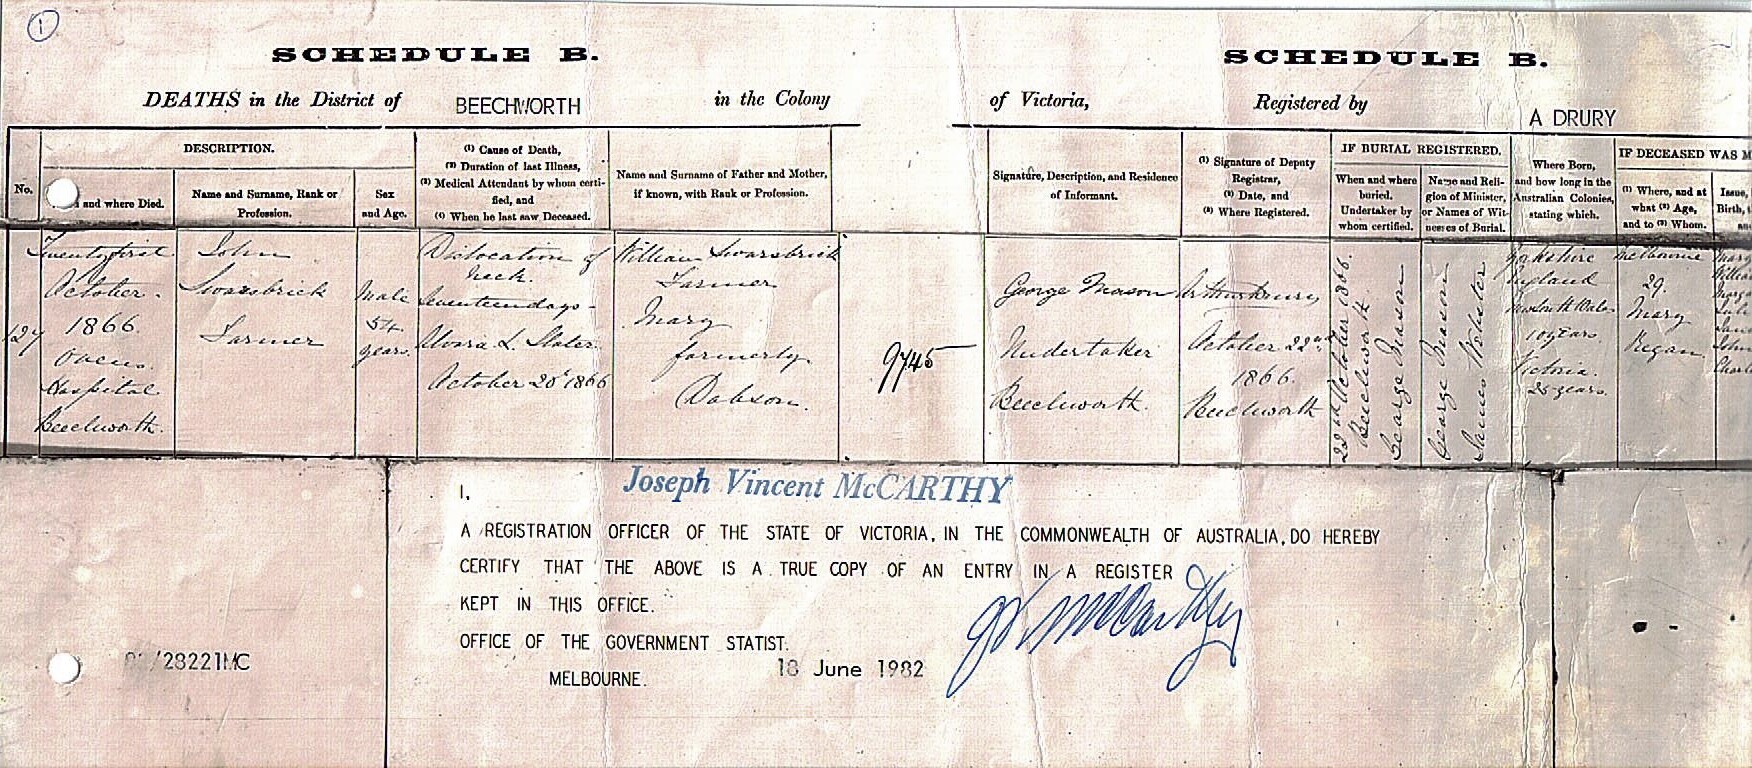 1
SCHEDULE B.
SCHEDULE B.
DEATHS in the District of BEECHWORTH in the Colony
of Victoria, Registered by A DRURY
No.
DESCRIPTION.
and where Died.
Name and Surname, Rank or
Profession.
Sex
and Age.
(1) Cause of Death,
(2) Duration of last Illness,
(3) Medical Attendant by whom certi-
fied, and
(4) When he last saw Deceased.
Name and Surname of Father and Mother,
if known, with Rank or Profession.
Signature, Description, and Residence
of Informant.
(1) Signature of Deputy
Registrar,
(2) Date, and
(3) Where Registered.
IF BURIAL REGISTERED.
When and where
buried.
Undertaker by
whom certified.
Name and Reli-
gion of Minister,
or Names of Wit-
nesses of Burial.
Where Born,
and how long in the
Australian Colonies,
stating which.
IF DECEASED WAS M
(1) Where, and at
what (2) Age,
and to (3) Whom.
Issue,
Birth,
127
Twenty first
October
1866
Ovens
Hospital
Beechworth
John
Swarsbrick
Farmer
Male
54
years
Dislocation of
neck
Seventeen days
October 20th 1866
William Swarsbrick
Farmer
Mary
formerly
Dobson
9745
George Mason
Undertaker
Beechworth
Arthur Drury
October 22nd
1866.
Beechworth
22nd October 1866.
Beechworth
George Mason
George Mason
James Webster
Yorkshire
England
New South Wales
10 years
Victoria
25 years
Melbourne
29.
Mary
Regan
Mary
I, Joseph Vincent McCARTHY
A REGISTRATION OFFICER OF THE STATE OF VICTORIA, IN THE COMMONWEALTH OF AUSTRALIA, DO HEREBY
CERTIFY THAT THE ABOVE IS A TRUE COPY OF AN ENTRY IN A REGISTER
KEPT IN THIS OFFICE.
OFFICE OF THE GOVERNMENT STATIST.
MELBOURNE. 18 June 1982
/28221MC